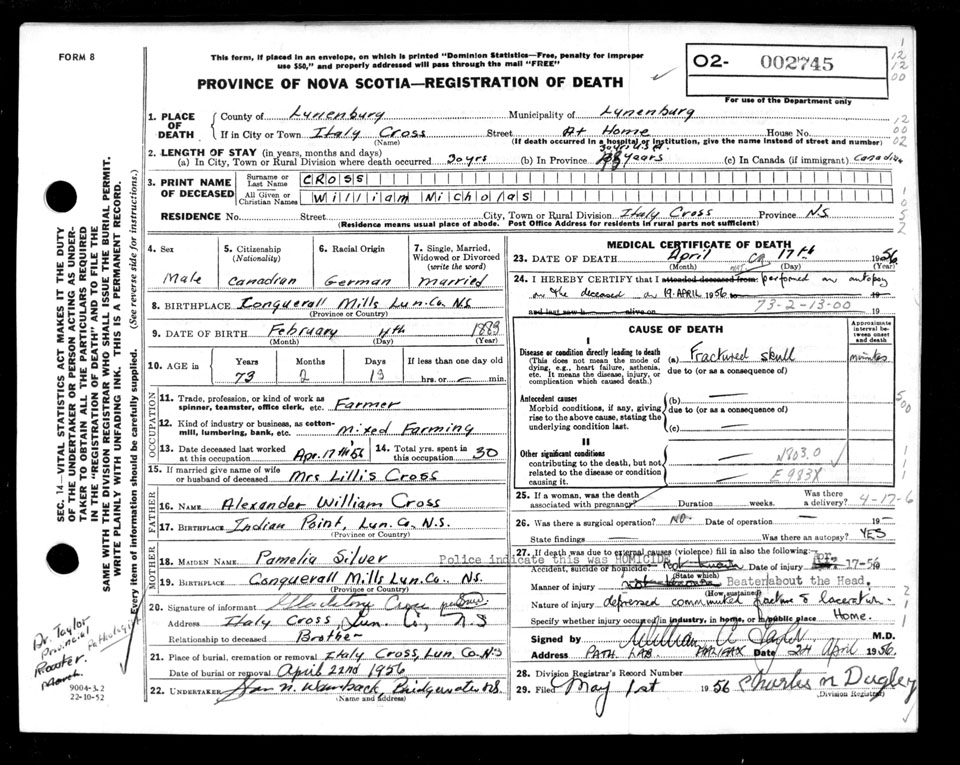 FORM 8
This form, if placed in an envelope, on which is printed "Dominion Statistics—Free, penalty for improper
use $50," and properly addressed will pass through the mail "FREE"
PROVINCE OF NOVA SCOTIA—REGISTRATION OF DEATH
O2- 002745
For use of the Department only
1. PLACE OF DEATH
County of Lunenburg Municipality of Lunenburg
If in City or Town Italy Cross Street At Home House No.
(Name) (If death occurred in a hospital or institution, give the name instead of street and number)
2. LENGTH OF STAY (in years, months and days)
(a) In City, Town or Rural Division where death occurred 30 yrs (b) In Province years (c) In Canada (if immigrant) Canadian
3. PRINT NAME OF DECEASED
Surname or Last Name CROSS
All Given or Christian Names William Nicholas
RESIDENCE No. Street City, Town or Rural Division Italy Cross Province N.S
(Residence means usual place of abode. Post Office Address for residents in rural parts not sufficient)
4. Sex
Male
5. Citizenship
(Nationality)
Canadian
6. Racial Origin
German
7. Single, Married,
Widowed or Divorced
(write the word)
Married
8. BIRTHPLACE Conquerall Mills Lun. Co. N.S.
(Province or Country)
9. DATE OF BIRTH February 4th 1883
(Month) (Day) (Year)
10. AGE in
Years
73
Months
2
Days
13
If less than one day old
hrs. or — min.
OCCUPATION
11. Trade, profession, or kind of work as
spinner, teamster, office clerk, etc. Farmer
12. Kind of industry or business, as cotton-
mill, lumbering, bank, etc. Mixed Farming
13. Date deceased last worked
at this occupation Apr. 17th 56
14. Total yrs. spent in
this occupation 30
15. If married give name of wife
or husband of deceased Mrs Lillis Cross
FATHER
16. NAME Alexander William Cross
17. BIRTHPLACE Indian Point, Lun. Co. N.S.
(Province or Country)
MOTHER
18. MAIDEN NAME Pamelia Silver
19. BIRTHPLACE Conquerall Mills Lun. Co., N.S.
(Province or Country)
20. Signature of informant Cross
Address Italy Cross, Lun. Co., N.S
Relationship to deceased Brother
21. Place of burial, cremation or removal Italy Cross, Lun. Co. N.S
Date of burial or removal April 22nd 1956
22. UNDERTAKER Bridgewater N.S.
(Name and address)
MEDICAL CERTIFICATE OF DEATH
23. DATE OF DEATH April ca 17th 1956
(Month) (Day) (Year)
24. I HEREBY CERTIFY that I attended deceased from: performed an autopsy
on the deceased on 19 APRIL 1956 to 19
and last saw h alive on 19
73-2-13-00
CAUSE OF DEATH
Approximate interval between onset and death
I
Disease or condition directly leading to death
(This does not mean the mode of
dying, e.g., heart failure, asthenia,
etc. It means the disease, injury, or
complication which caused death.)
(a) Fractured skull minutes
due to (or as a consequence of)
Antecedent causes
Morbid conditions, if any, giving
rise to the above cause, stating the
underlying condition last.
(b) —
due to (or as a consequence of)
(c) —
II
Other significant conditions
contributing to the death, but not
related to the disease or condition
causing it.
N803.0
E983X
25. If a woman, was the death
associated with pregnancy? Duration weeks. Was there a delivery?
4-17-6
26. Was there a surgical operation? NO Date of operation — 19 —
State findings — Was there an autopsy? YES
27. If death was due to external causes (violence) fill in also the following:
Police indicate this was HOMICIDE
Accident, suicide or homicide? not known Date of injury 17-56
(State which)
Manner of injury Beaten about the Head.
(How sustained)
Nature of injury depressed comminuted fracture & laceration.
Specify whether injury occurred in industry, in home, or in public place Home.
Signed by William A. Taylor M.D.
Address PATH. LAB. HALIFAX Date 24 April 1956.
28. Division Registrar's Record Number
29. Filed May 1st 1956 Charles M Dagley
(Division Registrar)
SEC. 14 - VITAL STATISTICS ACT MAKES IT THE DUTY
OF THE UNDERTAKER OR PERSON ACTING AS UNDER-
TAKER TO OBTAIN ALL THE PARTICULARS REQUIRED
IN THE "REGISTRATION OF DEATH" AND TO FILE THE
SAME WITH THE DIVISION REGISTRAR WHO SHALL ISSUE THE BURIAL PERMIT.
WRITE PLAINLY WITH UNFADING INK. THIS IS A PERMANENT RECORD.
Every item of information should be carefully supplied. (See reverse side for instructions.)
Dr. Taylor
Provincial
Pathologist
9004-3.2
22-10-52